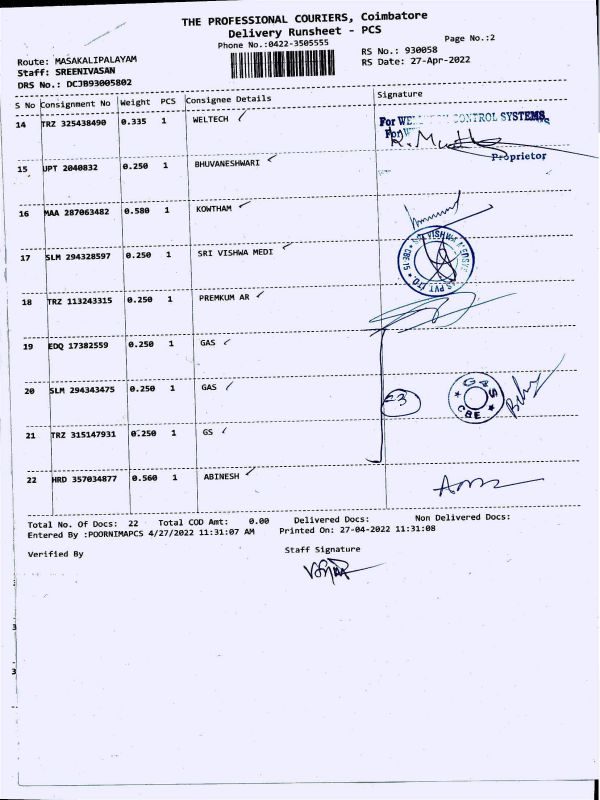 THE PROFESSIONAL COURIERS, Coimbatore
Delivery Runsheet - PCS
Phone No.:0422-3505555
Page No.:2
Route: MASAKALIPALAYAM
RS No.: 930058
Staff: SREENIVASAN
RS Date: 27-Apr-2022
DRS No.: DCJB93005802
S No Consignment No Weight PCS Consignee Details Signature
14 TRZ 325438490 0.335 1 WELTECH
For WE CONTROL SYSTEMS
For
Proprietor
15 UPT 2040832 0.250 1 BHUVANESHWARI
16 MAA 287063482 0.580 1 KOWTHAM
17 SLM 294328597 0.250 1 SRI VISHWA MEDI
VISHWA
CBE 15
PVT LTD
18 TRZ 113243315 0.250 1 PREMKUM AR
19 EDQ 17382559 0.250 1 GAS
20 SLM 294343475 0.250 1 GAS
23
GAS
CBE
21 TRZ 315147931 0.250 1 GS
22 HRD 357034877 0.560 1 ABINESH
Total No. Of Docs: 22 Total COD Amt: 0.00 Delivered Docs: Non Delivered Docs:
Entered By :POORNIMAPCS 4/27/2022 11:31:07 AM Printed On: 27-04-2022 11:31:08
Verified By Staff Signature